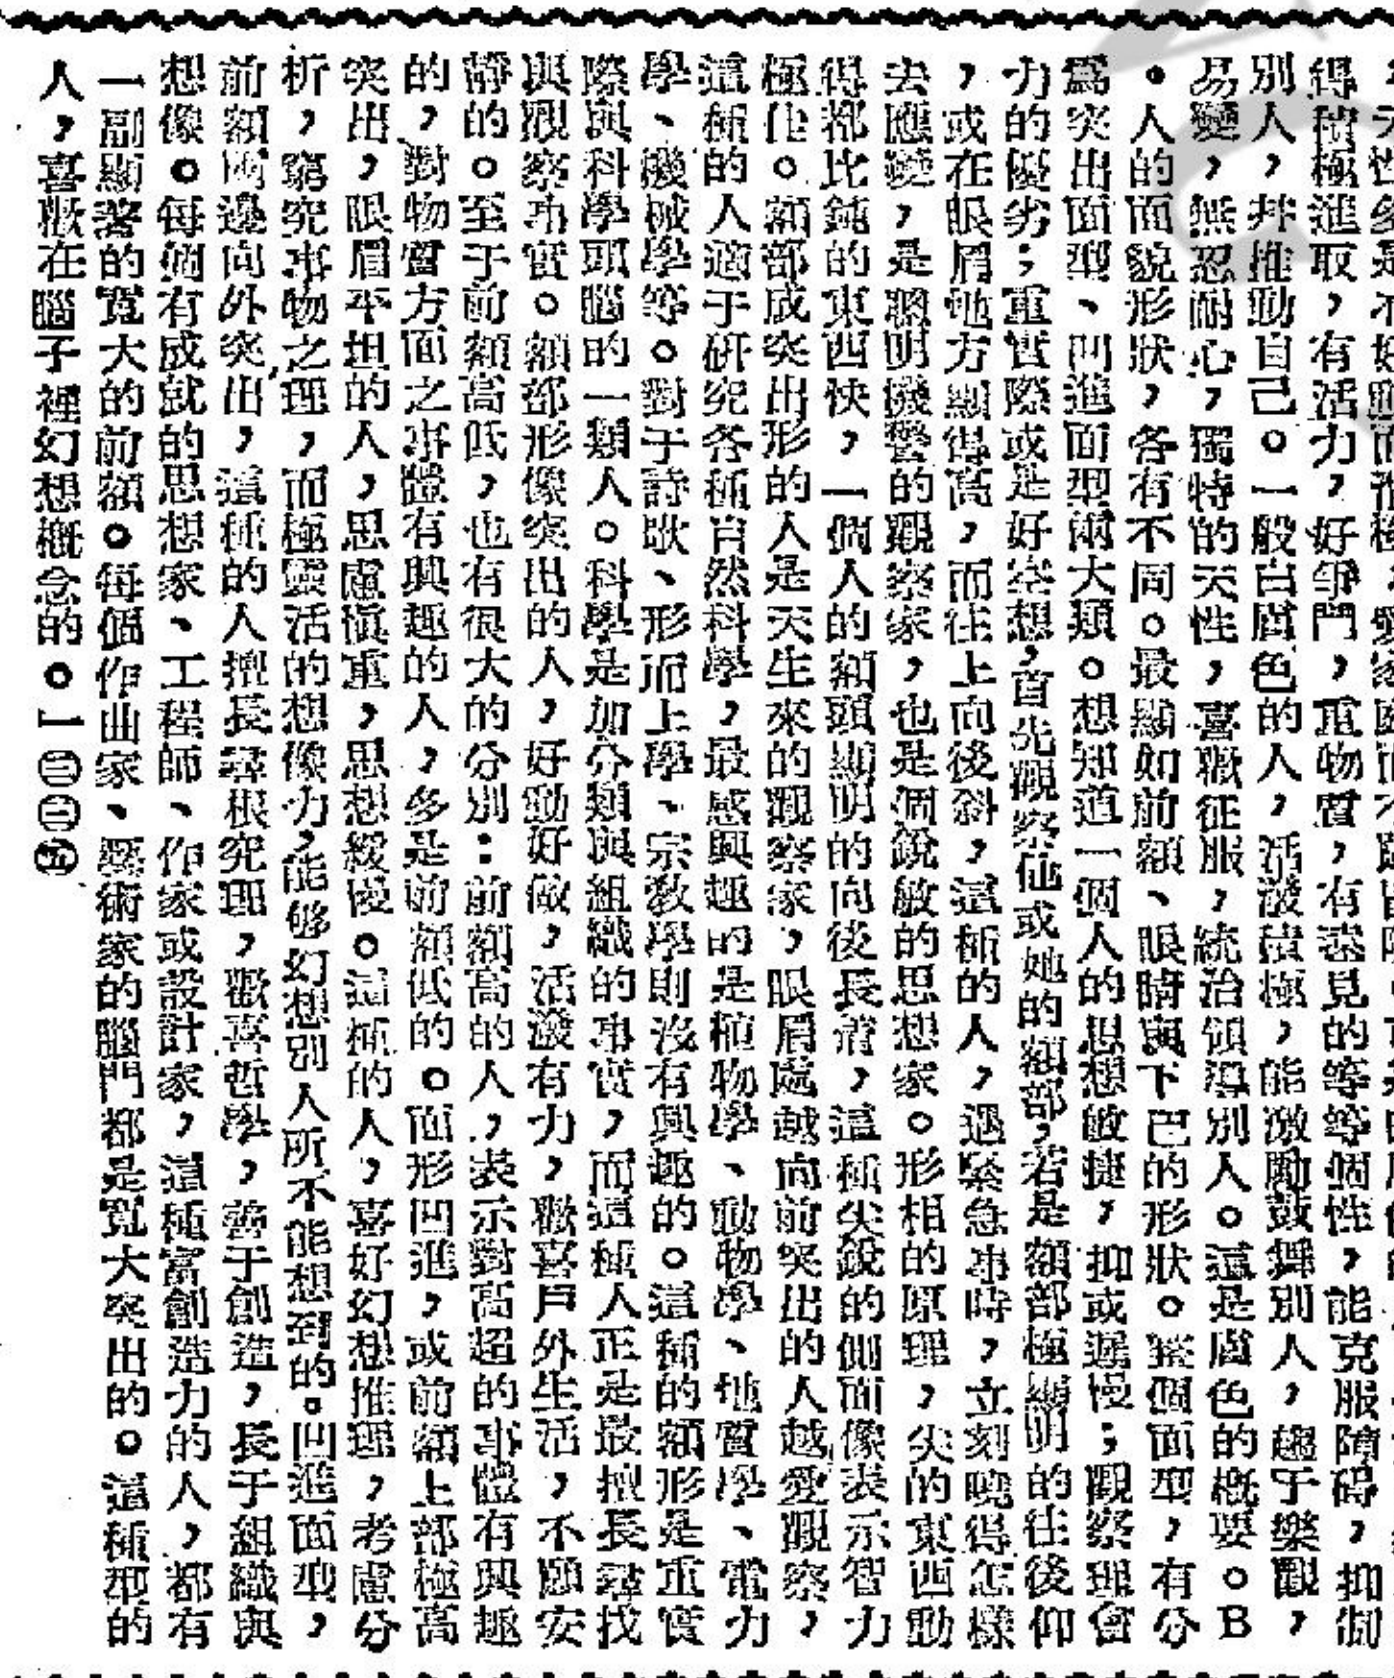 得積極進取，有活力，好爭鬥，重物質，有遠見的等等個性，能克服障碍，抑制
別人，并推動自己。一般白膚色的人，活潑積極，能激勵鼓舞別人，趨于樂觀，
易變，無忍耐心，獨特的天性，喜歡征服，統治領導別人。這是膚色的概要。B
。人的面貌形狀，各有不同。最顯如前額、眼睛與下巴的形狀。整個面型，有分
爲突出面型、凹進面型兩大類。想知道一個人的思想敏捷，抑或遲慢；觀察理會
力的優劣；重實際或是好空想，首先觀察他或她的額部，若是額部極顯明的往後仰
，或在眼眉地方顯得高，而往上向後斜，這種的人，遇緊急事時，立刻曉得怎樣
去應變，是聰明機警的觀察家，也是個銳敏的思想家。形相的原理，尖的東西動
得都比鈍的東西快，一個人的額頭顯明的向後長着，這種尖銳的側面像表示智力
極佳。額部成突出形的人是天生來的觀察家，眼眉處越向前突出的人越愛觀察，
這種的人適于研究各種自然科學，最感興趣的是植物學、動物學、地質學、電力
學、機械學等。對于詩歌、形而上學、宗教學則沒有興趣的。這種的額形是重實
際與科學頭腦的一類人。科學是加分類與組織的事實，而這種人正是最擅長尋找
與觀察事實。額部形像突出的人，好動好做，活潑有力，歡喜戶外生活，不願安
靜的。至于前額高低，也有很大的分別：前額高的人，表示對高超的事體有興趣
的，對物質方面之事體有興趣的人，多是前額低的。面形凹進，或前額上部極高
突出，眼眉平坦的人，思慮慎重，思想緩慢。這種的人，喜好幻想推理，考慮分
析，窮究事物之理，而極靈活的想像力，能够幻想別人所不能想到的。凹進面型，
前額兩邊向外突出，這種的人擅長尋根究理，歡喜哲學，善于創造，長于組織與
想像。每個有成就的思想家、工程師、作家或設計家，這種富創造力的人，都有
一副顯著的寬大的前額。每個作曲家、藝術家的腦門都是寬大突出的。這種型的
人，喜歡在腦子裡幻想概念的。